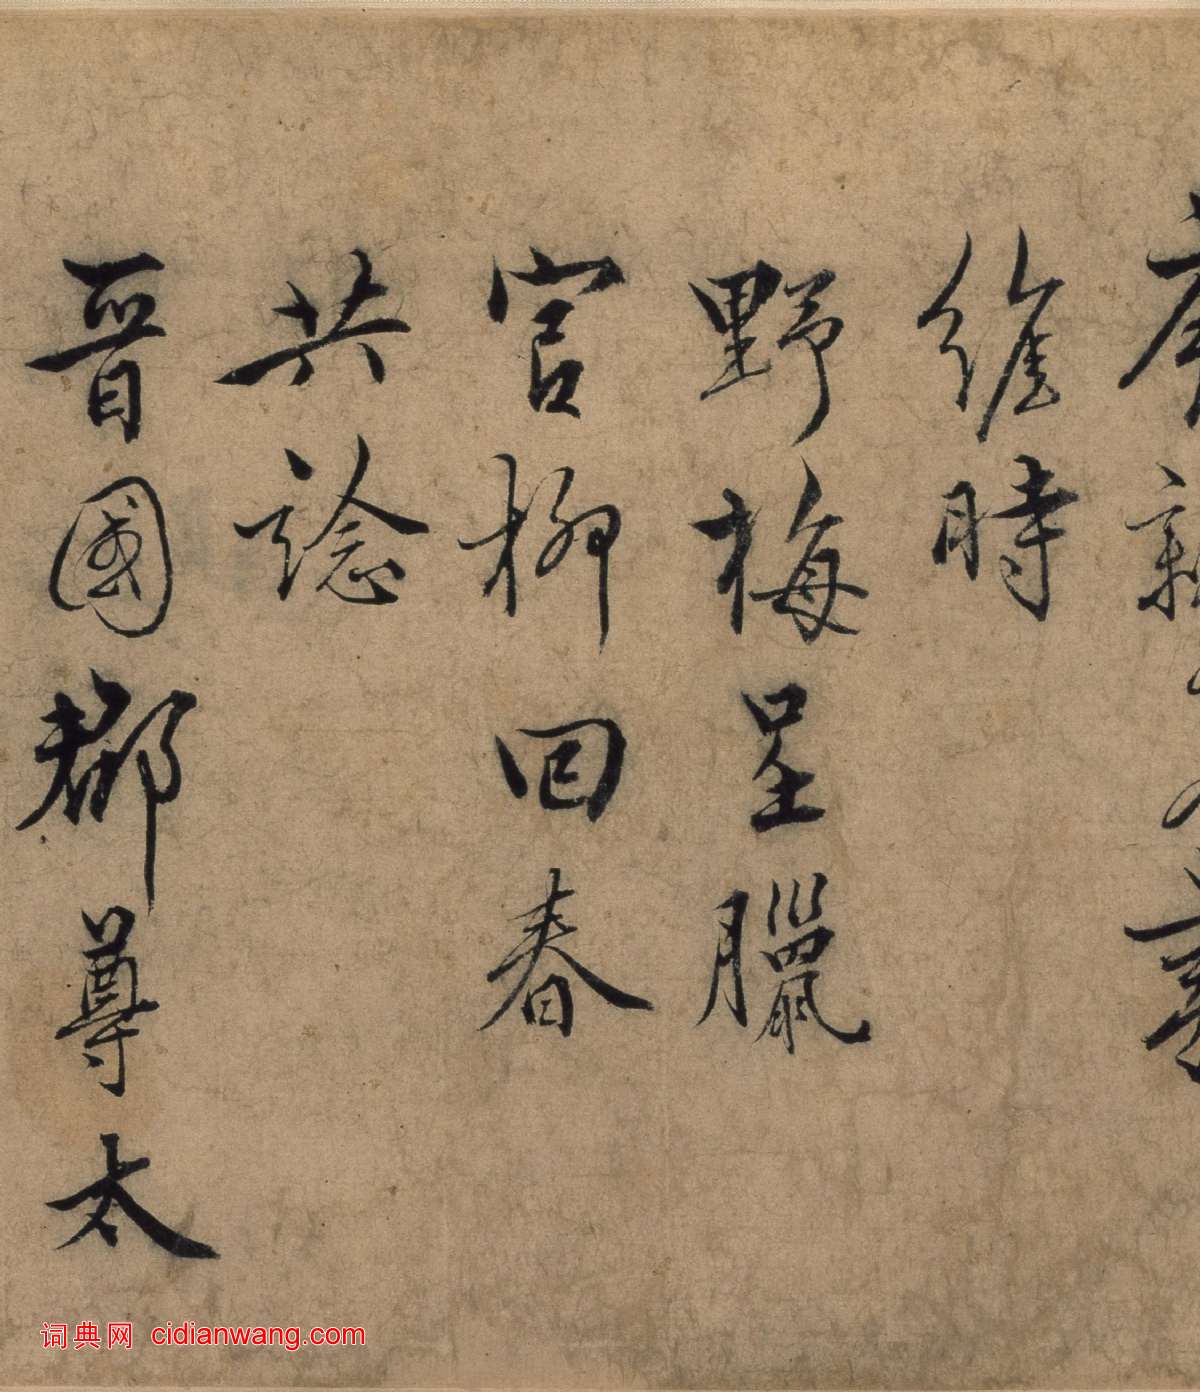 維時
野梅呈臘
官柳回春
共諗
晉國郡尊太
词典网 cidianwang.com